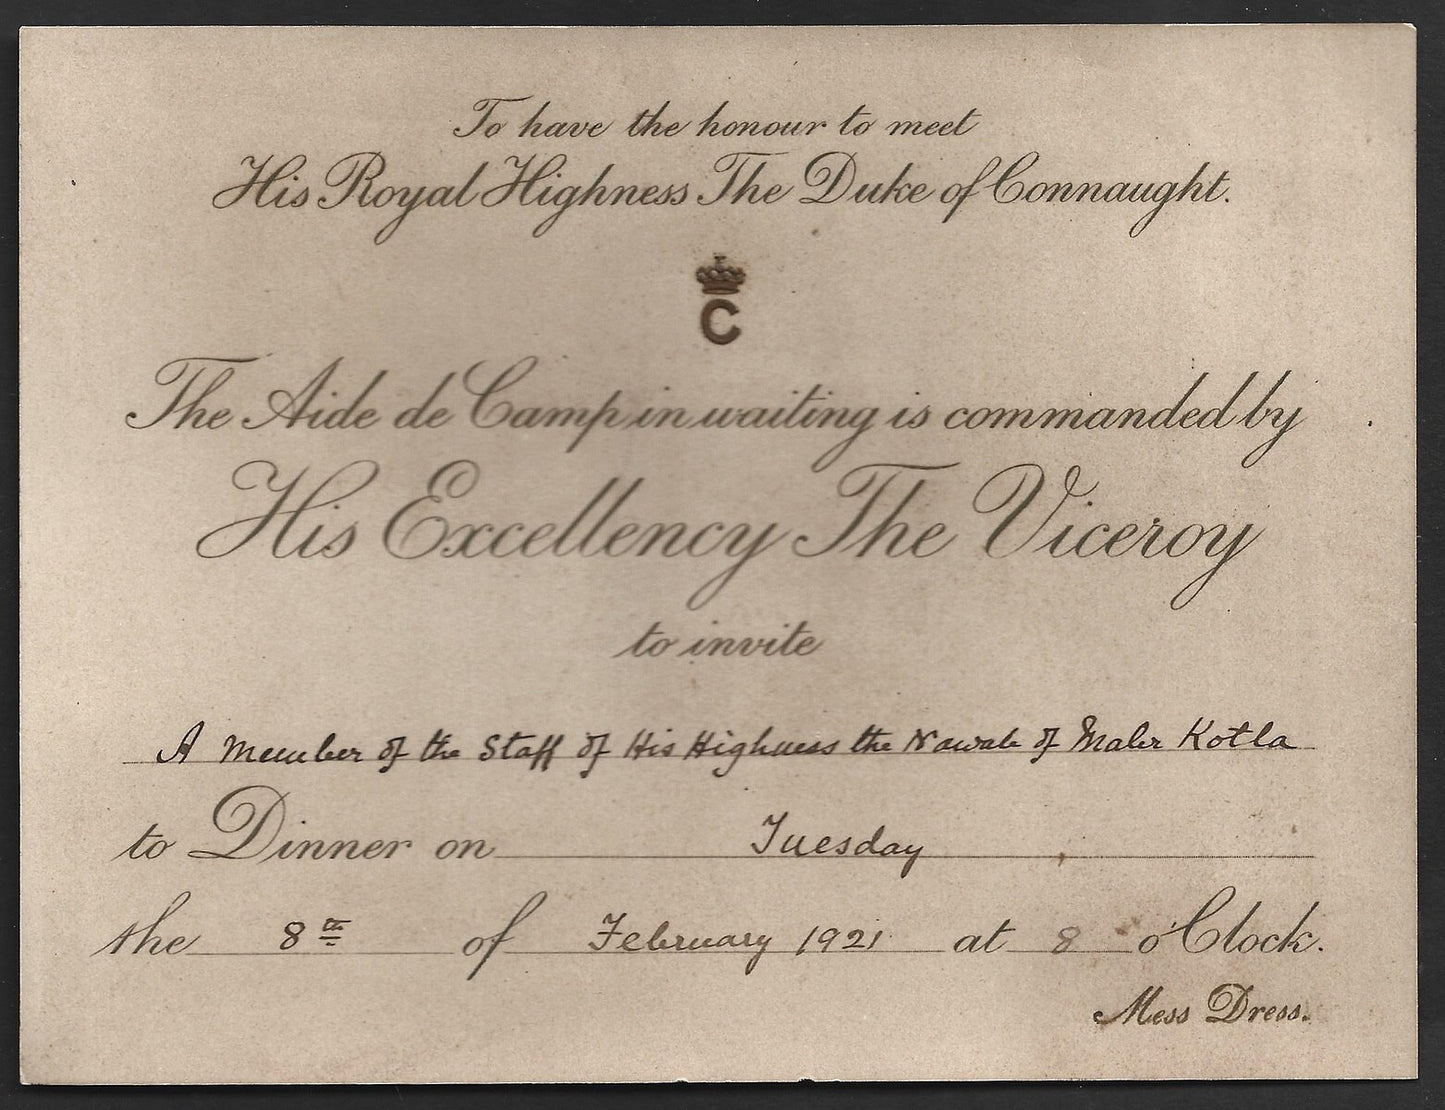 To have the honour to meet
His Royal Highness The Duke of Connaught.
C
The Aide de Camp in waiting is commanded by
His Excellency The Viceroy
to invite
A Member of the Staff of His Highness the Nawab of Maler Kotla
to Dinner on Tuesday
the 8th of February 1921 at 8 o'Clock.
Mess Dress.